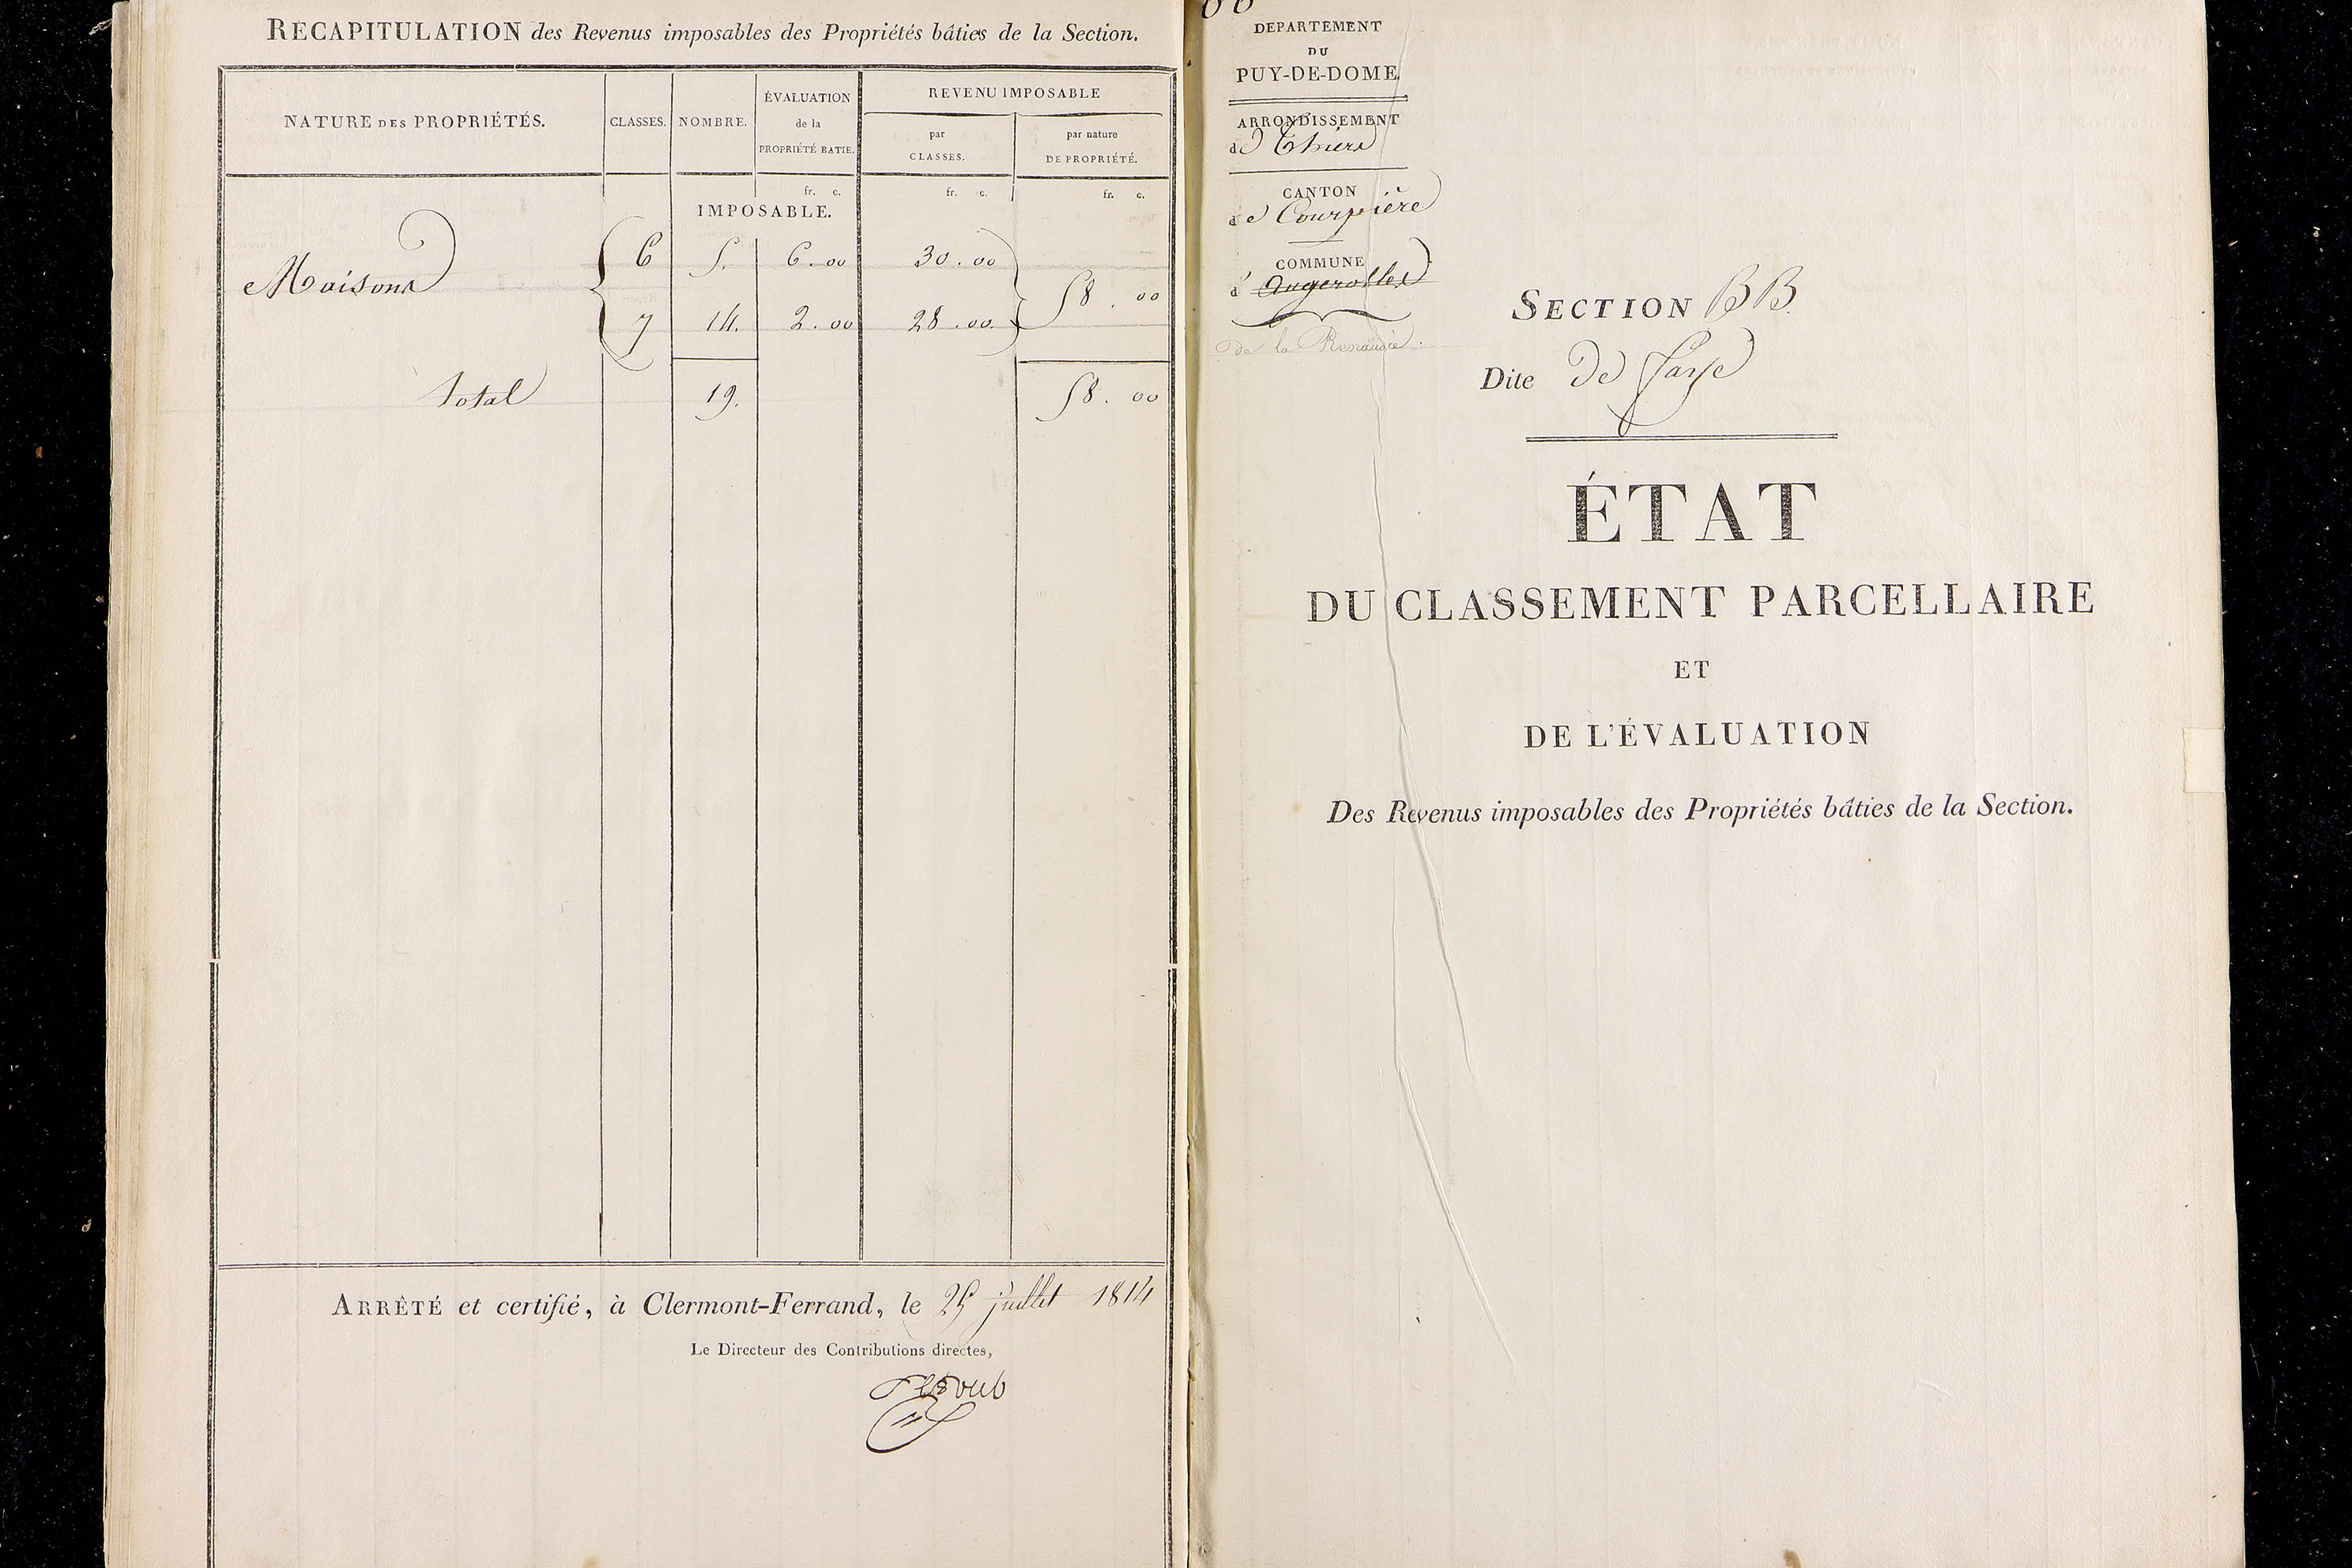 RÉCAPITULATION des Revenus imposables des Propriétés bâties de la Section.
NATURE DES PROPRIÉTÉS. CLASSES. NOMBRE. ÉVALUATION de la PROPRIÉTÉ BATIE. REVENU IMPOSABLE
par CLASSES. par nature DE PROPRIÉTÉ.
fr. c. fr. c. fr. c.
IMPOSABLE.
Maisons 6 5. 6.00 30.00
58.00
7 14. 2.00 28.00
total 19. 58.00
ARRÊTÉ et certifié, à Clermont-Ferrand, le 25 juillet 1814
Le Directeur des Contributions directes,
DEPARTEMENT
DU
PUY-DE-DOME.
ARRONDISSEMENT
de Thiers
CANTON
de Courpière
COMMUNE
d'Augerolles
de la Renaudie.
SECTION BB.
Dite De
ÉTAT
DU CLASSEMENT PARCELLAIRE
ET
DE L'ÉVALUATION
Des Revenus imposables des Propriétés bâties de la Section.